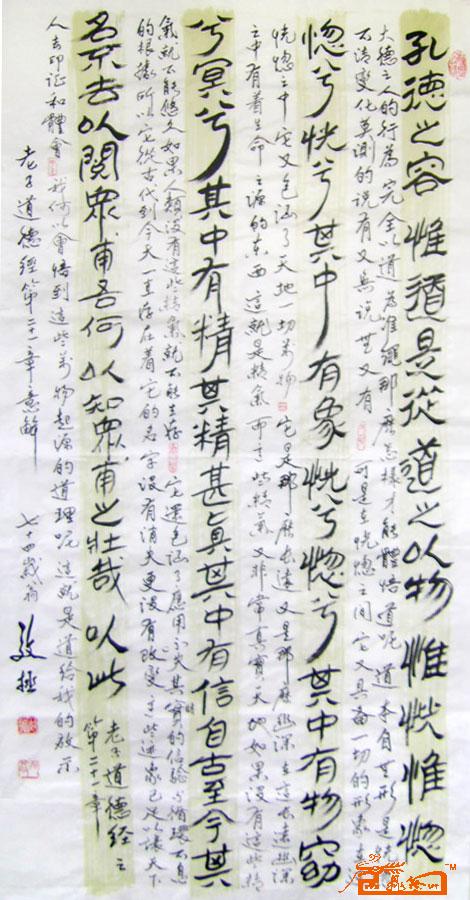 孔德之容惟道是從道之以物惟恍惟惚
大德之人的行為完全以道為準繩那麼怎樣才能體悟道呢道本自無形是
不清變化莫測的說有又無說無又有可是在恍惚之間它又具备一切的形象在
惚兮恍兮其中有象恍兮惚兮其中有物窈
恍惚之中它又包涵了天地一切萬物它是那麼長遠又是那麼幽深在這長遠幽深
之中有着生命之源的東西這就是精氣而這些精氣又非常真實天地如果沒有這些精
兮冥兮其中有精其精甚真其中有信自古至今其
氣就不能悠久如果人類沒有這些精氣就不能生存它還包涵了應用不失其實的信驗与循環不息
的根據所以它從古代到今天一直存在着它的名字沒有消失更沒有改變這些迹象已足以讓天下
名不去以閱眾甫吾何以知眾甫之壯哉以此
老子道德經之
第二十一章
人去印证和體會我何以會悟到這些萬物起源的道理呢這就是道給我的啟示
老子道德經第二十一章意解
七十四歲翁